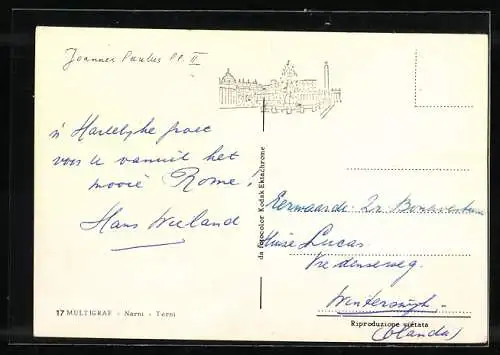 Joannes Paulus PP. II
'n Hartelijke groet
voor U vanuit het
mooie Rome!
Hans Wieland
17 MULTIGRAF - Narni - Terni
da fotocolor Kodak Ektachrome
Eerwaarde Zr. Bonaventura
Huize Lucas
Vredenseweg.
Winterswijk.
(Olanda)
Riproduzione vietata